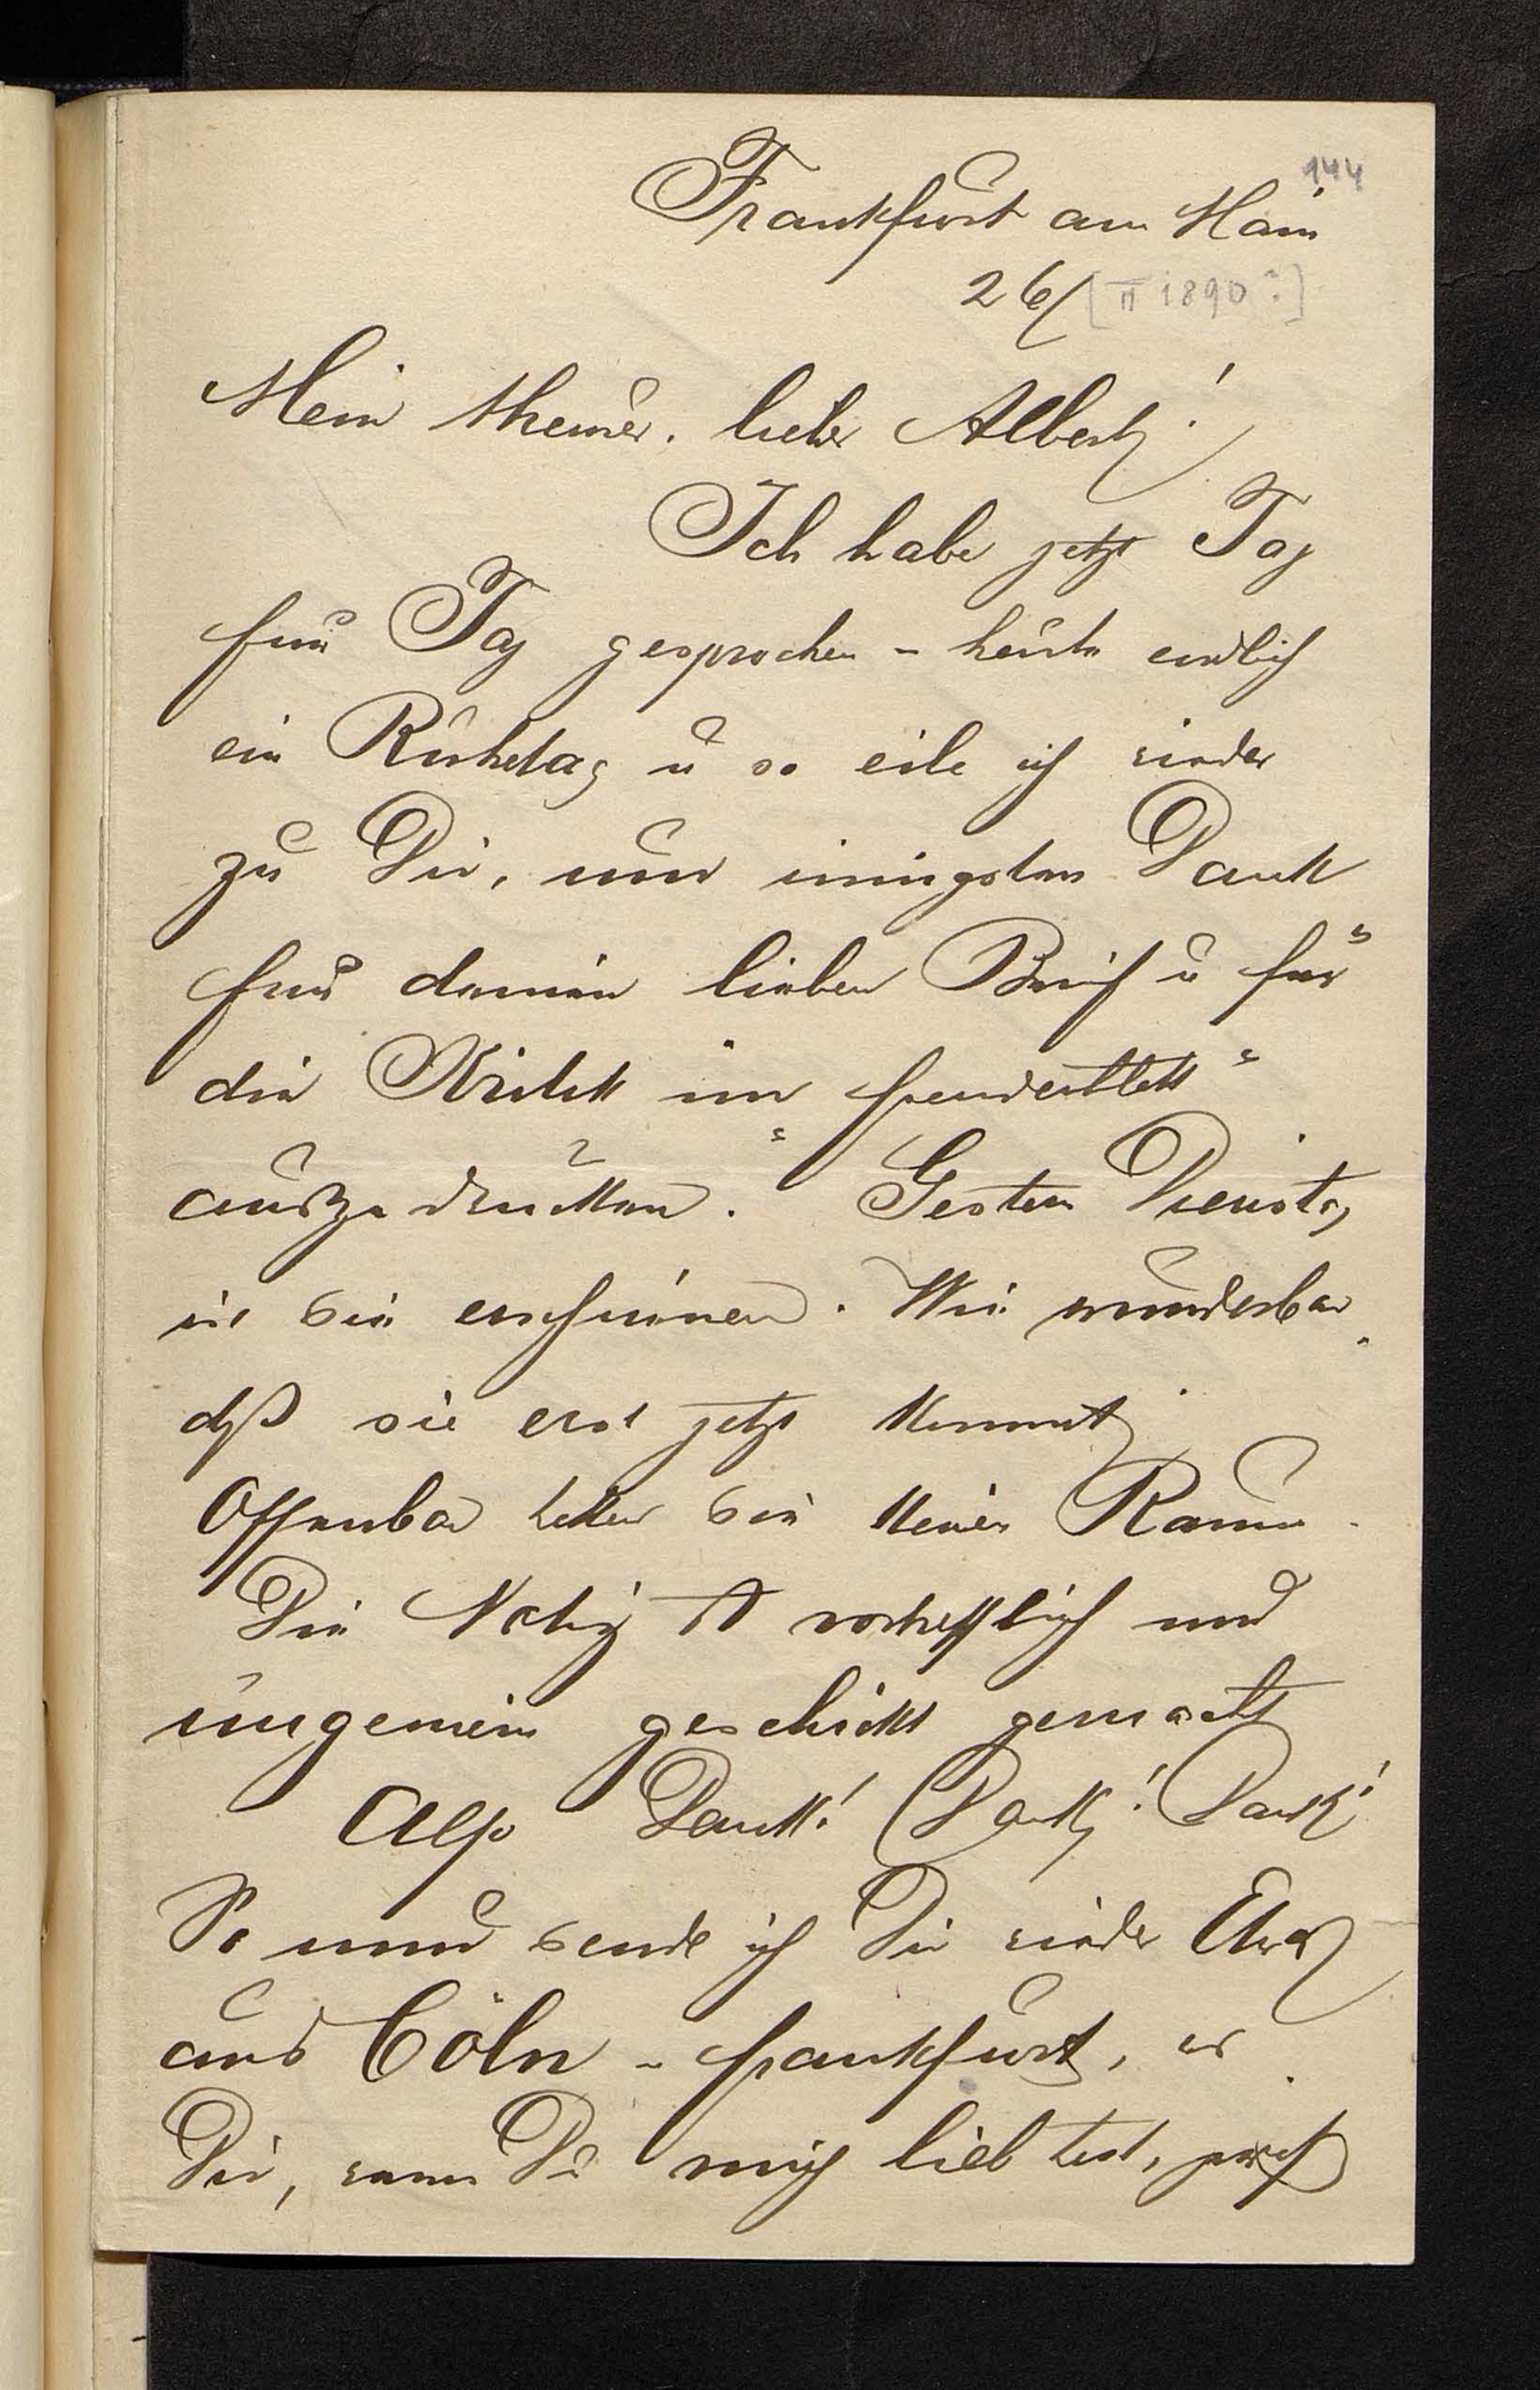 144
Frankfurt am Main
26/ [II 1890?]
Mein theurer, lieber Albert!
Ich habe jetzt Tag
für Tag gesprochen - heute endlich
ein Ruhetag u so eile ich wieder
zu Dir, um innigsten Dank
für deinen lieben Brief u für
die Kritik im Fremdenblatt
auszudrücken. Gestern Dienstag
ist sie erschienen. Wie wunderbar
dß sie erst jetzt kommt
Offenbar hatten sie keinen Raum.
Die Notiz ist vortrefflich und
ungemein geschickt gemacht
Also Dank! Dank! Dank!
So nun sende ich Dir wieder Etwas
aus Cöln - Frankfurt, es
Dir, wenn Du mich lieb hast,